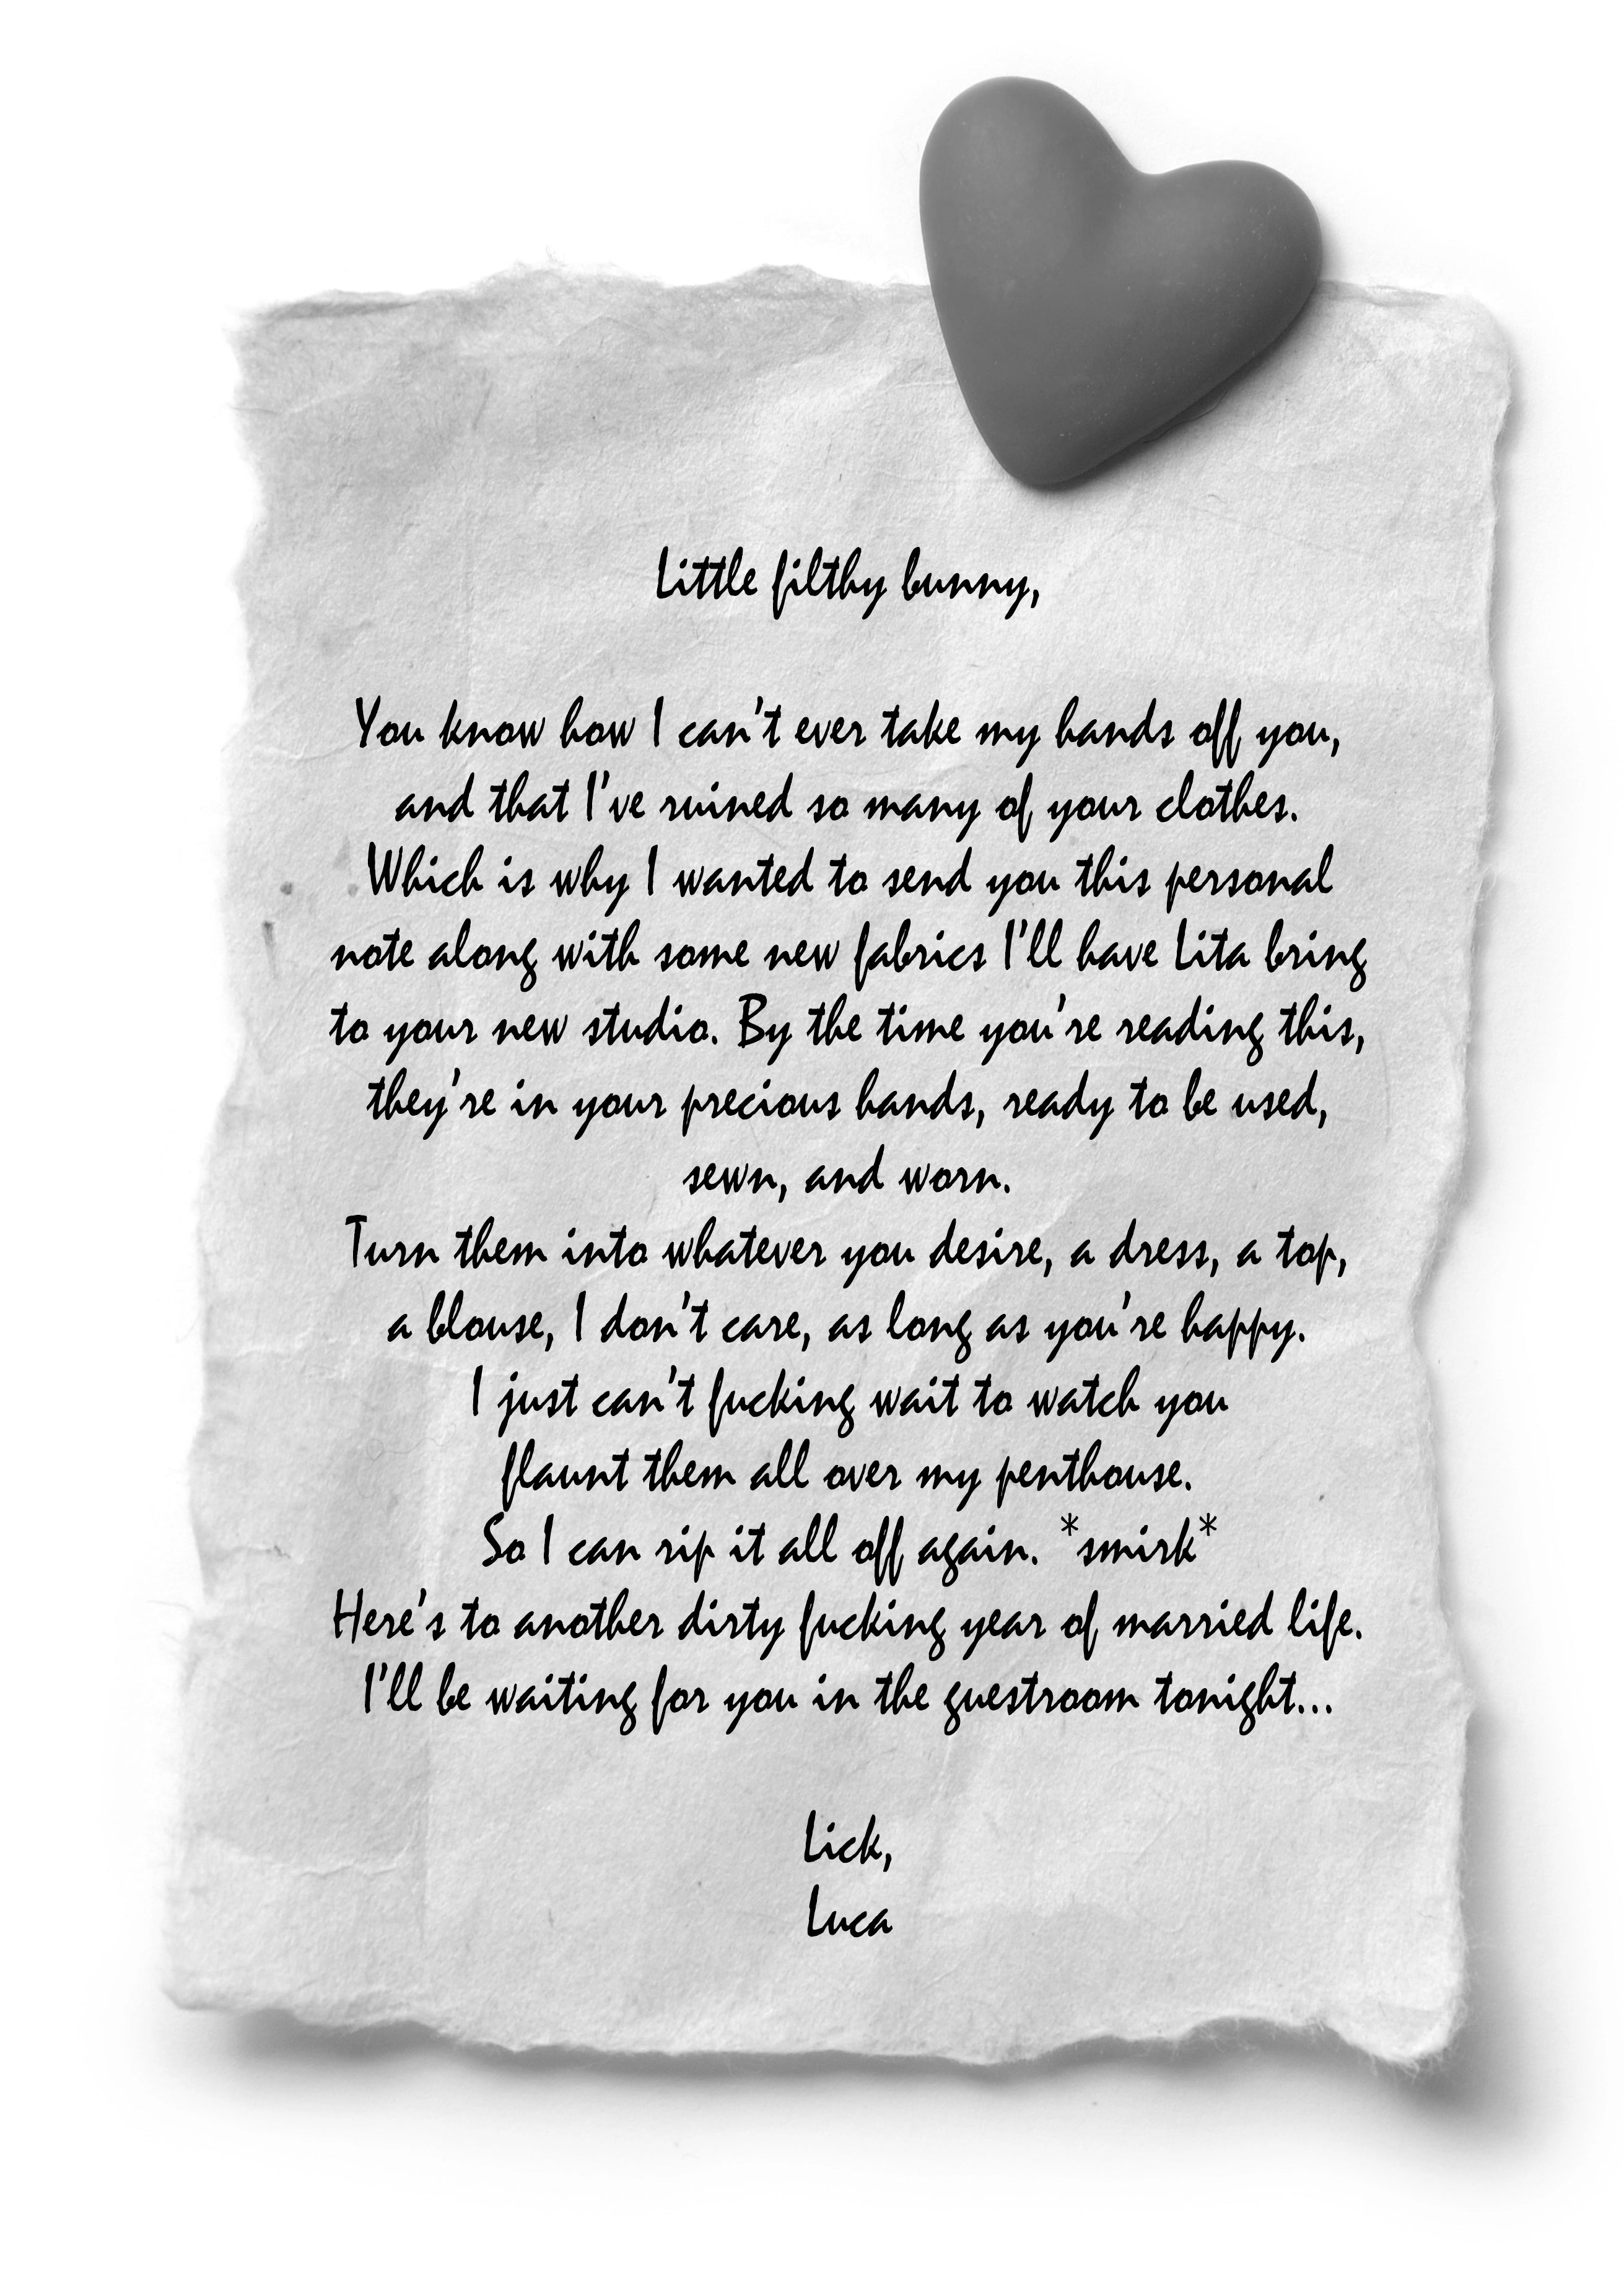 Little filthy bunny,
You know how I can't ever take my hands off you,
and that I've ruined so many of your clothes.
Which is why I wanted to send you this personal
note along with some new fabrics I'll have Lita bring
to your new studio. By the time you're reading this,
they're in your precious hands, ready to be used,
sewn, and worn.
Turn them into whatever you desire, a dress, a top,
a blouse, I don't care, as long as you're happy.
I just can't fucking wait to watch you
flaunt them all over my penthouse.
So I can rip it all off again. *smirk*
Here's to another dirty fucking year of married life.
I'll be waiting for you in the guestroom tonight...
Lick,
Luca